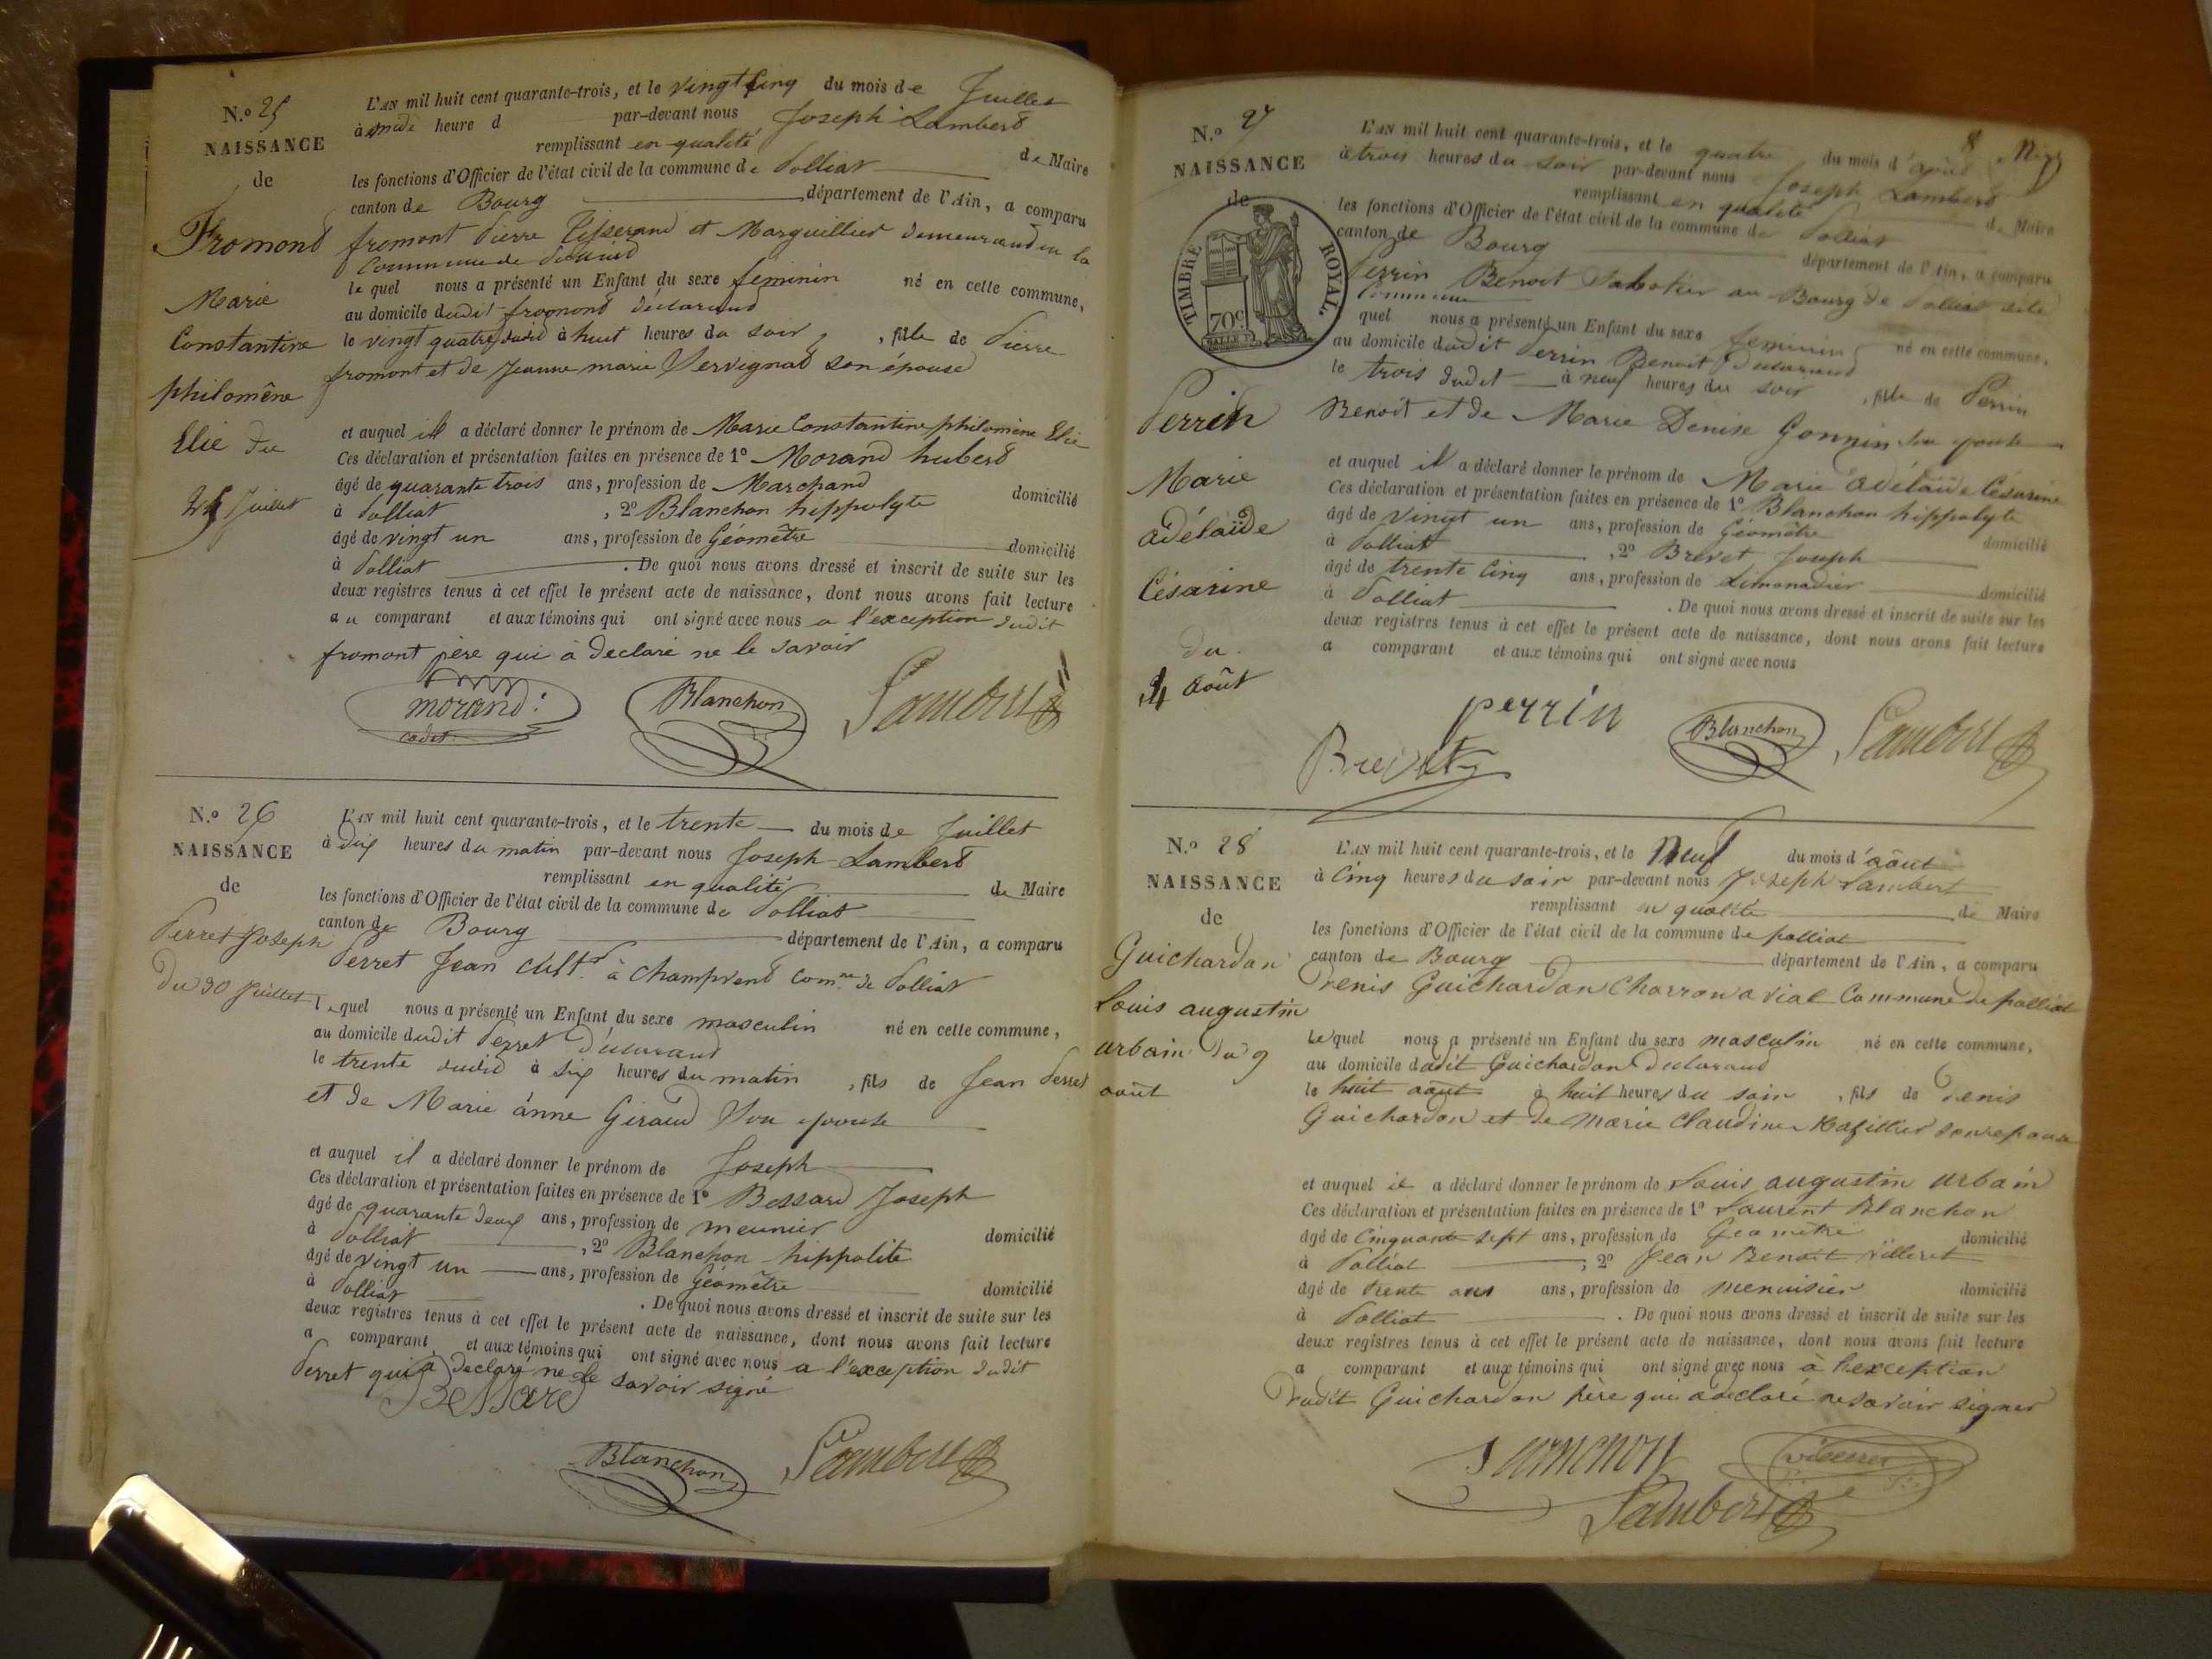 N.º 25
NAISSANCE
de
Fromond
Marie
Constantine
philomène
Elie du
25 Juillet
L'AN mil huit cent quarante-trois, et le vingt Cinq du mois de Juillet
à midi heure d par-devant nous Joseph Lambert
remplissant en qualité de Maire
les fonctions d'Officier de l'état civil de la commune de Polliat
canton de Bourg département de l'Ain, a comparu
fromont Pierre Tisserand et Marguillier demeurand en la
Commune de Polliat
le quel nous a présenté un Enfant du sexe feminin né en cette commune,
au domicile dudit fromond déclarand
le vingt quatre dudit à huit heures du soir, fille de Pierre
fromont et de Jeanne marie Servignat son épouse
et auquel il a déclaré donner le prénom de Marie Constantine philomène Elie
Ces déclaration et présentation faites en présence de 1º Morand hubert
âgé de quarante trois ans, profession de Marchand domicilié
à Polliat, 2º Blanchon hippolyte
âgé de vingt un ans, profession de Géomêtre domicilié
à Polliat. De quoi nous avons dressé et inscrit de suite sur les
deux registres tenus à cet effet le présent acte de naissance, dont nous avons fait lecture
au comparant et aux témoins qui ont signé avec nous a l'exception dudit
fromont père qui a declaré ne le savoir
morand
cadet
Blanchon
Lambert
N.º 26
NAISSANCE
de
Perret Joseph
Du 30 Juillet
L'AN mil huit cent quarante-trois, et le trente du mois de Juillet
à dix heures du matin par-devant nous Joseph Lambert
remplissant en qualité de Maire
les fonctions d'Officier de l'état civil de la commune de Polliat
canton de Bourg département de l'Ain, a comparu
Perret Jean cult.r à Champvent com.ne de Polliat
le quel nous a présenté un Enfant du sexe masculin né en cette commune,
au domicile dudit Perret Déclarand
le trente dudit à six heures du matin, fils de Jean Perret
et de Marie anne Giraud Son epouse
et auquel il a déclaré donner le prénom de Joseph
Ces déclaration et présentation faites en présence de 1º Bessard Joseph
âgé de quarante deux ans, profession de meunier domicilié
à Polliat, 2º Blanchon hippolite
âgé de vingt un ans, profession de Géomêtre domicilié
à Polliat. De quoi nous avons dressé et inscrit de suite sur les
deux registres tenus à cet effet le présent acte de naissance, dont nous avons fait lecture
a comparant et aux témoins qui ont signé avec nous a l'exception dudit
Perret qui a declaré ne le savoir signé
Bessard
Blanchon
Lambert
8
N.º 27
NAISSANCE
de
TIMBRE ROYAL.
70c
Perrin
Marie
adélaïde
Césarine
du
4 Août
L'AN mil huit cent quarante-trois, et le quatre du mois d'août
à trois heures du soir par-devant nous Joseph Lambert
remplissant en qualité de Maire
les fonctions d'Officier de l'état civil de la commune de Polliat
canton de Bourg département de l'Ain, a comparu
Perrin Benoit Sabotier au Bourg de Polliat dite
Commune
quel nous a présenté un Enfant du sexe feminin né en cette commune,
au domicile dudit Perrin Benoit Déclarand
le trois dudit à neuf heures du soir, fille de Perrin
Benoit et de Marie Denise Gonnin Son epouse
et auquel il a déclaré donner le prénom de Marie adélaïde Césarine
Ces déclaration et présentation faites en présence de 1º Blanchon hippolyte
âgé de vingt un ans, profession de Géomêtre domicilié
à Polliat, 2º Brevet Joseph
âgé de trente Cinq ans, profession de Limonadier domicilié
à Polliat. De quoi nous avons dressé et inscrit de suite sur les
deux registres tenus à cet effet le présent acte de naissance, dont nous avons fait lecture
a comparant et aux témoins qui ont signé avec nous
perrin
Brevet
Blanchon
Lambert
N.º 28
NAISSANCE
de
Guichardon
Louis augustin
urbain du 9
août
L'AN mil huit cent quarante-trois, et le Neuf du mois d'août
à Cinq heures du soir par-devant nous Joseph Lambert
remplissant en qualité de Maire
les fonctions d'Officier de l'état civil de la commune de polliat
canton de Bourg département de l'Ain, a comparu
Denis Guichardon Charron a vial Commune de polliat
Lequel nous a présenté un Enfant du sexe masculin né en cette commune,
au domicile dudit Guichardon Declarand
le huit août à huit heures du soir, fils de Denis
Guichardon et de Marie Claudine son epouse
et auquel il a déclaré donner le prénom de Louis augustin urbain
Ces déclaration et présentation faites en présence de 1º Laurent Blanchon
âgé de Cinquante sept ans, profession de Geomêtre domicilié
à Polliat, 2º Jean Benoit villeret
âgé de trente ans ans, profession de menuisier domicilié
à Polliat. De quoi nous avons dressé et inscrit de suite sur les
deux registres tenus à cet effet le présent acte de naissance, dont nous avons fait lecture
a comparant et aux témoins qui ont signé avec nous à l'exception
Dudit Guichardon père qui a declaré ne savoir signer
Lambert